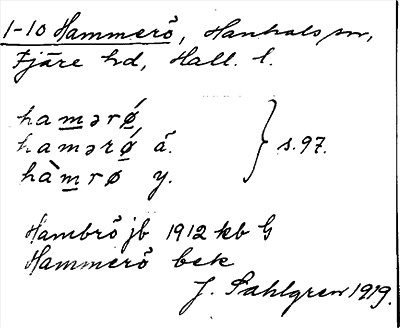 1-10 Hammerö, Hanhals sn,
Fjäre hd, Hall. l.
hamərǿ
hamərǿ ä. } s. 97.
hàmrø y.
Hambrö jb 1912 kb G
Hammerö bek
J. Sahlgren 1919.